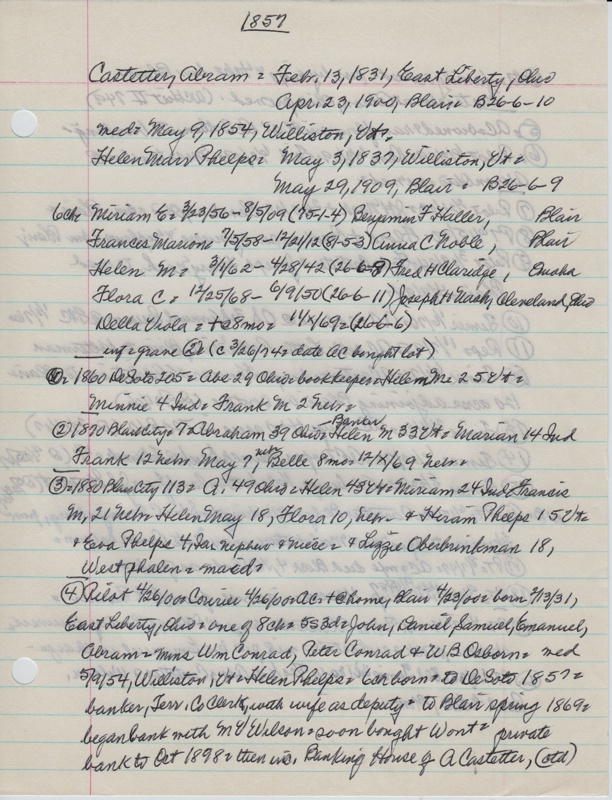 1857
Castetter, Abram = Febr. 13, 1831, East Liberty, Ohio
Apr. 23, 1900, Blair = B26-6-10
med = May 9, 1854, Williston, Vt =
Helen Marr Phelps = May 3, 1837, Williston, Vt =
May 29, 1909, Blair = B26-6-9
6ch = Miriam E = 3/23/56 - 8/5/09 (75-1-4) Benjamin F Haller, Blair
Frances Marion = 7/5/58 - 12/21/12 (81-5-3) Anna C Noble, Blair
Helen M = 3/1/62 - 4/28/42 (26-6-8) Fred H Claridge, Omaha
Flora C = 12/25/68 - 6/9/50 (26-6-11) Joseph H Nash, Cleveland, Ohio
Della Viola = + a8mo = 14/X/69 = (26-6-6)
inf = grave 2 (c 3/26/74 = date AC bought lot)
1860 DeSoto 205 = Abe 29 Ohio = bookkeeper = Helen M 25 Vt =
Minnie 4 Ind = Frank M 2 Nebr =
② 1870 Blair City = 7 = Abraham 39 Ohio = Banker Helen M 33 Vt = Marian 14 Ind
Frank 12 Nebr May 7, Nebr Belle 8mo = 12/X/69 Nebr =
③ = 1880 Blair City 113 = A. 49 Ohio = Helen 43 Vt = Miriam 24 Ind Francis
M, 21 Nebr = Helen May 18, Flora 10, Nebr & Hiram Phelps 15 Vt =
& Eva Phelps 4, Ia = nephew & niece = & Lizzie Oberbrinkman 18,
Westphalen = maid =
④ Pilot 4/26/00 = Courier 4/26/00 = AC + @ home, Blair 4/23/00 = born 2/13/31,
East Liberty, Ohio = one of 8ch = 5s 3d = John, Daniel, Samuel, Emanuel,
Abram = Mmes Wm Conrad, Peter Conrad & W B Osborn = med
5/9/54, Williston, Vt = Helen Phelps = 6ch born = to DeSoto 1857 =
banker, Terr. Co Clerk, with wife as deputy = to Blair spring 1869 =
began bank with M V Wilson = soon bought W out = private
bank to Oct 1898 = then inc. Banking House of A Castetter, (old)